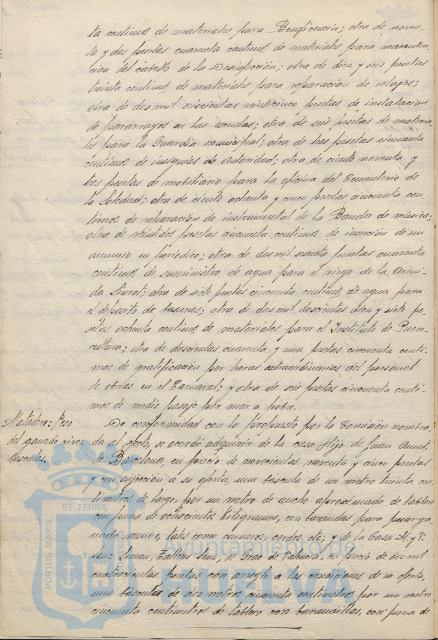 ta centimos de materiales para Beneficencia; otra de noven-
ta y dos pesetas cuarenta centimos de materiales para
ción del caballo de la Desinfección; otra de diez y seis pesetas
treinta centimos de materiales para reparación de relojes;
otra de dos mil seiscientas veinticinco pesetas de instalación
de pararrayos en las escuelas; otra de seis pesetas de materia-
les para la Guardia municipal; otra de tres pesetas cincuenta
centimos de insignias de autoridad; otra de ciento noventa y
tres pesetas de mobiliario para la oficina del Cementerio de
la Soledad; otra de ciento ochenta y cinco pesetas cincuenta cen-
timos de reparación de instrumental de la Banda de música;
otra de veintidos pesetas cincuenta centimos de inserción de un
anuncio en periódico; otra de dos mil sesenta pesetas cuarenta
centimos de suministro de agua para el riego de la Aveni-
da Pural; otra de siete pesetas cincuenta centimos de agua para
el depósito de basuras; otra de dos mil doscientas diez y siete pe-
setas ochenta centimos de materiales para el Instituto de Pueri-
cultura; otra de doscientas cuarenta y una pesetas cincuenta centi-
mos de gratificación por horas extraordinarias del personal
de obras en el Carnaval; y otra de seis pesetas cincuenta centi-
mos de medio pasaje por mar a pobre.
Matadero: Peso
del ganado vivo:
básculas.
De conformidad con lo propuesto por la Comisión nombra-
da al efecto, se acordó adquirir de la casa Hijo de Juan
de Barcelona, en precio de novecientas noventa y cinco pesetas
y con sujeción a su oferta, una báscula de un metro treinta cen-
timetros de largo, por un metro de ancho aproximado de tablero
con fuerza de ochocientos kilogramos, con barandas para pesar ga-
nado menor, tales como carneros, cerdos, etc; y de la casa
de Valencia, en precio de dos mil
cuatrocientas pesetas con arreglo a las condiciones de su oferta,
una báscula de dos metros cincuenta centimetros por un metro
cincuenta centimetros de tablero con barandillas, con fuerza de
PORTUS MAGIS
ET TERRA
Ayuntamiento de